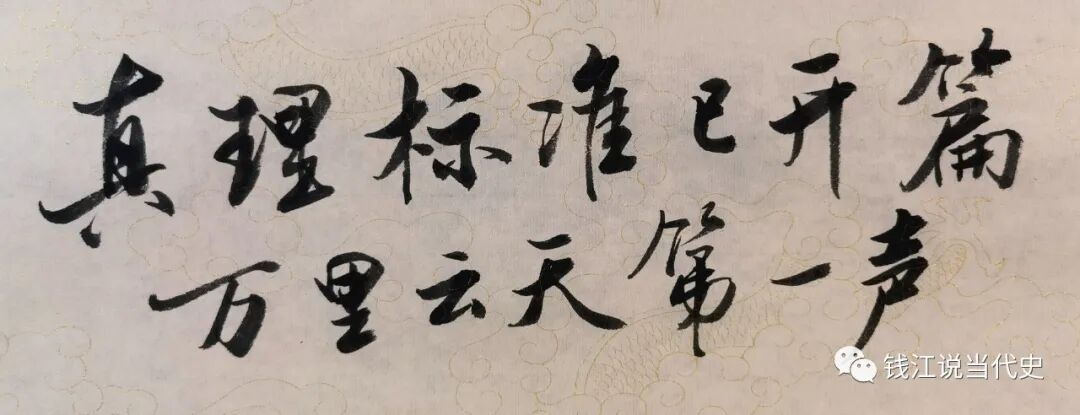 真理标准已开篇
万里云天第一声
钱江说当代史